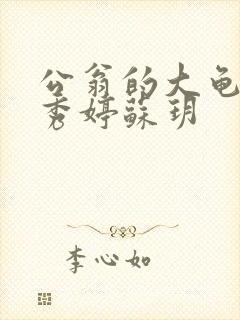 公翁的大龟
秀婷苏玥
李心如